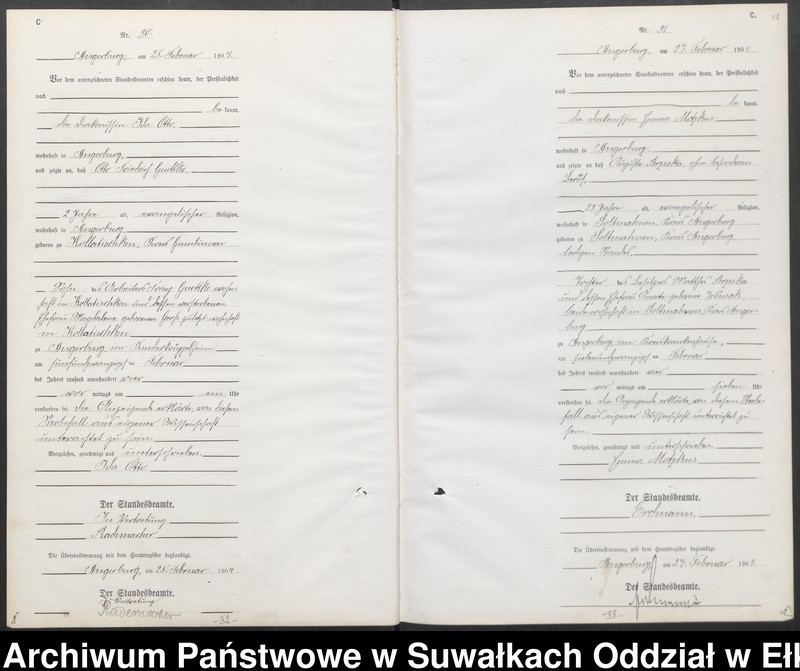 C
Nr. 30.
Angerburg, am 25. Februar 1904.
Vor dem unterzeichneten Standesbeamten erschien heute, der Persönlichkeit
nach
be kannt,
die Diakonissin Ida Otto,
wohnhaft in Angerburg,
und zeigte an, daß Otto Friedrich Guettke,
2 Jahre alt, evangelischer Religion,
wohnhaft in Angerburg
geboren zu Kollatischken, Kreis Gumbinnen
Sohn des Arbeiters Guettke wohn-
haft in Kollatischken und dessen verstorbenen
Ehefrau Magdalena geborenen zuletzt wohnhaft
in Kollatischken
zu Angerburg im Kinderkrüppelheim
am fünfundzwanzigsten Februar
des Jahres tausend neunhundert vier
vor mittags um ein Uhr
verstorben sei. Die Anzeigende erklärte, von diesem
Sterbefall aus eigener Wissenschaft
unterrichtet zu sein.
Vorgelesen, genehmigt und unterschrieben.
Ida Otto
Der Standesbeamte.
In Vertretung
Rademacher
Die Übereinstimmung mit dem Hauptregister beglaubigt.
Angerburg, am 25. Februar 1904.
Der Standesbeamte.
In Vertretung
Rademacher
-32-
C.
Nr. 31
Angerburg, am 27. Februar 1904
Vor dem unterzeichneten Standesbeamten erschien heute, der Persönlichkeit
nach
be kannt,
die Diakonissin Emma Motzkus
wohnhaft in Angerburg.
und zeigte an, daß Auguste Brzeska ohne besonderen
Beruf,
23 Jahre alt, evangelischer Religion,
wohnhaft in Soltmahnen, Kreis Angerburg
geboren zu Soltmahnen, Kreis Angerburg,
ledigen Standes,
Tochter des Besitzers Brzeska
und dessen Ehefrau geborene
beide wohnhaft in Soltmahnen, Kreis Anger-
burg
zu Angerburg, im Kreiskrankenhause,
am siebenundzwanzigsten Februar
des Jahres tausend neunhundert vier
vor mittags um sieben Uhr
verstorben sei. Die Anzeigende erklärte, von diesem Sterbe-
fall aus eigener Wissenschaft unterrichtet zu
sein.
Vorgelesen, genehmigt und unterschrieben.
Emma Motzkus
Der Standesbeamte.
Erdmann.
Die Übereinstimmung mit dem Hauptregister beglaubigt.
Angerburg, am 27. Februar 1904.
Der Standesbeamte.
-33-
Archiwum Państwowe w Suwałkach Oddział w Eł